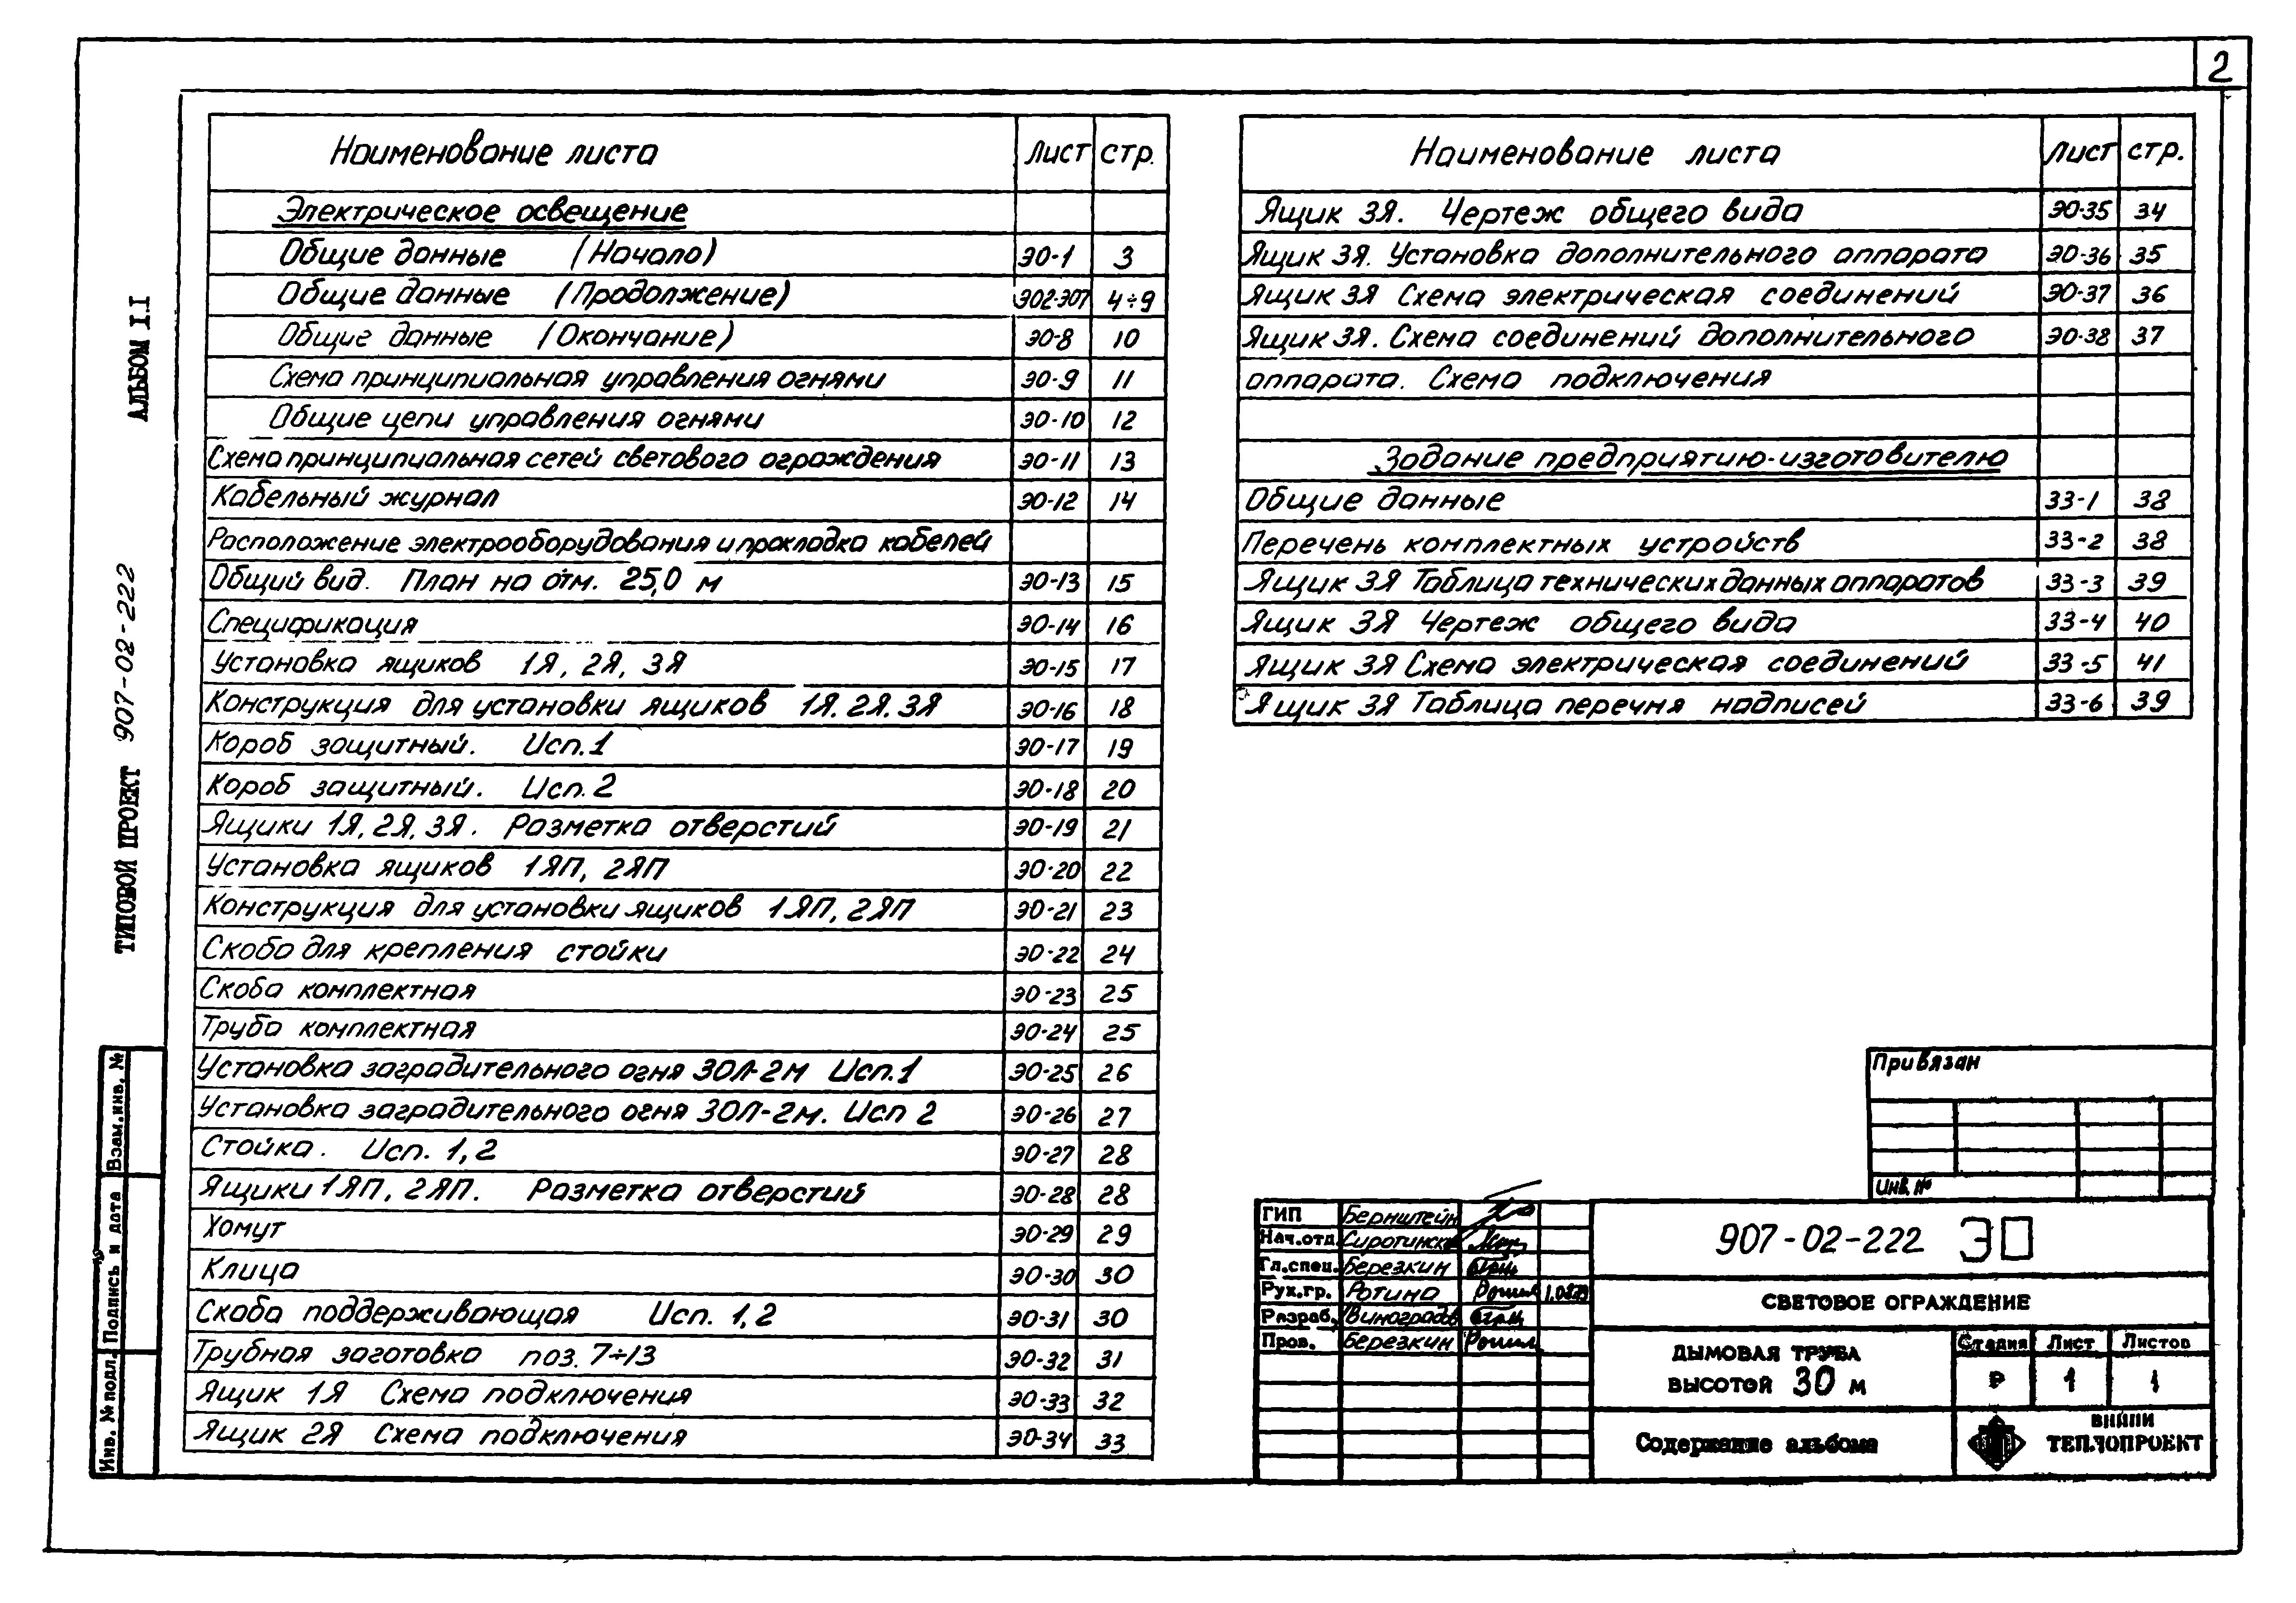 2
Наименование листа Лист стр.
Электрическое освещение
Общие данные (Начало) ЭО-1 3
Общие данные (Продолжение) ЭО2-ЭО7 4÷9
Общие данные (Окончание) ЭО-8 10
Схема принципиальная управления огнями ЭО-9 11
Общие цепи управления огнями ЭО-10 12
Схема принципиальная сетей светового ограждения ЭО-11 13
Кабельный журнал ЭО-12 14
Расположение электрооборудования и прокладка кабелей
Общий вид. План на отм. 25,0 м ЭО-13 15
Спецификация ЭО-14 16
Установка ящиков 1Я, 2Я, 3Я ЭО-15 17
Конструкция для установки ящиков 1Я. 2Я. 3Я ЭО-16 18
Короб защитный. Исп.1 ЭО-17 19
Короб защитный. Исп.2 ЭО-18 20
Ящики 1Я, 2Я, 3Я. Разметка отверстий ЭО-19 21
Установка ящиков 1ЯП, 2ЯП ЭО-20 22
Конструкция для установки ящиков 1ЯП, 2ЯП ЭО-21 23
Скоба для крепления стойки ЭО-22 24
Скоба комплектная ЭО-23 25
Труба комплектная ЭО-24 25
Установка заградительного огня ЗОЛ-2м Исп.1 ЭО-25 26
Установка заградительного огня ЗОЛ-2м. Исп 2 ЭО-26 27
Стойка. Исп. 1,2 ЭО-27 28
Ящики 1ЯП, 2ЯП. Разметка отверстий ЭО-28 28
Хомут ЭО-29 29
Клица ЭО-30 30
Скоба поддерживающая Исп. 1,2 ЭО-31 30
Трубная заготовка поз. 7÷13 ЭО-32 31
Ящик 1Я Схема подключения ЭО-33 32
Ящик 2Я Схема подключения ЭО-34 33
Наименование листа Лист стр.
Ящик 3Я. Чертеж общего вида ЭО-35 34
Ящик 3Я. Установка дополнительного аппарата ЭО-36 35
Ящик 3Я Схема электрическая соединений ЭО-37 36
Ящик 3Я. Схема соединений дополнительного ЭО-38 37
аппарата. Схема подключения
Задание предприятию-изготовителю
Общие данные ЗЗ-1 38
Перечень комплектных устройств ЗЗ-2 38
Ящик 3Я Таблица технических данных аппаратов ЗЗ-3 39
Ящик 3Я Чертеж общего вида ЗЗ-4 40
Ящик 3Я Схема электрическая соединений ЗЗ-5 41
Ящик 3Я Таблица перечня надписей ЗЗ-6 39
ТИПОВОЙ ПРОЕКТ 907-02-222 АЛЬБОМ I.I
Инв. № подл. Подпись и дата Взам.инв. №
Привязан
Инв. №
ГИП Бернштейн
Нач.отд. Сиротинский
Гл.спец. Березкин
Рук.гр. Ротина
Разраб. Виноградов
Пров. Березкин
907-02-222 ЭО
СВЕТОВОЕ ОГРАЖДЕНИЕ
ДЫМОВАЯ ТРУБА
ВЫСОТОЙ 30 м
Стадия Лист Листов
Р 1 1
Содержание альбома
ВНИПИ
ТЕПЛОПРОЕКТ